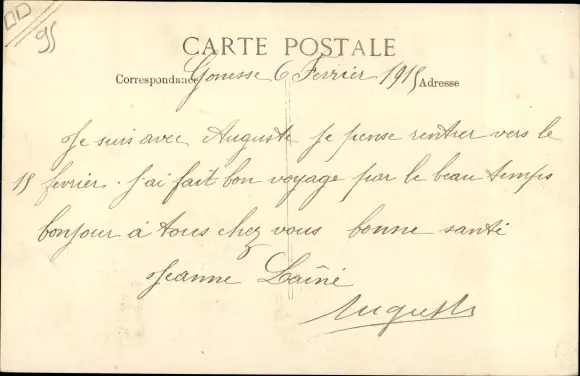 95
CARTE POSTALE
Correspondance Gonesse 6 Fevrier 1915 Adresse
Je suis avec Auguste je pense rentrer vers le
15 fevrier. J'ai fait bon voyage par le beau temps
bonjour à tous chez vous bonne santé
Jeanne Laîné
Auguste